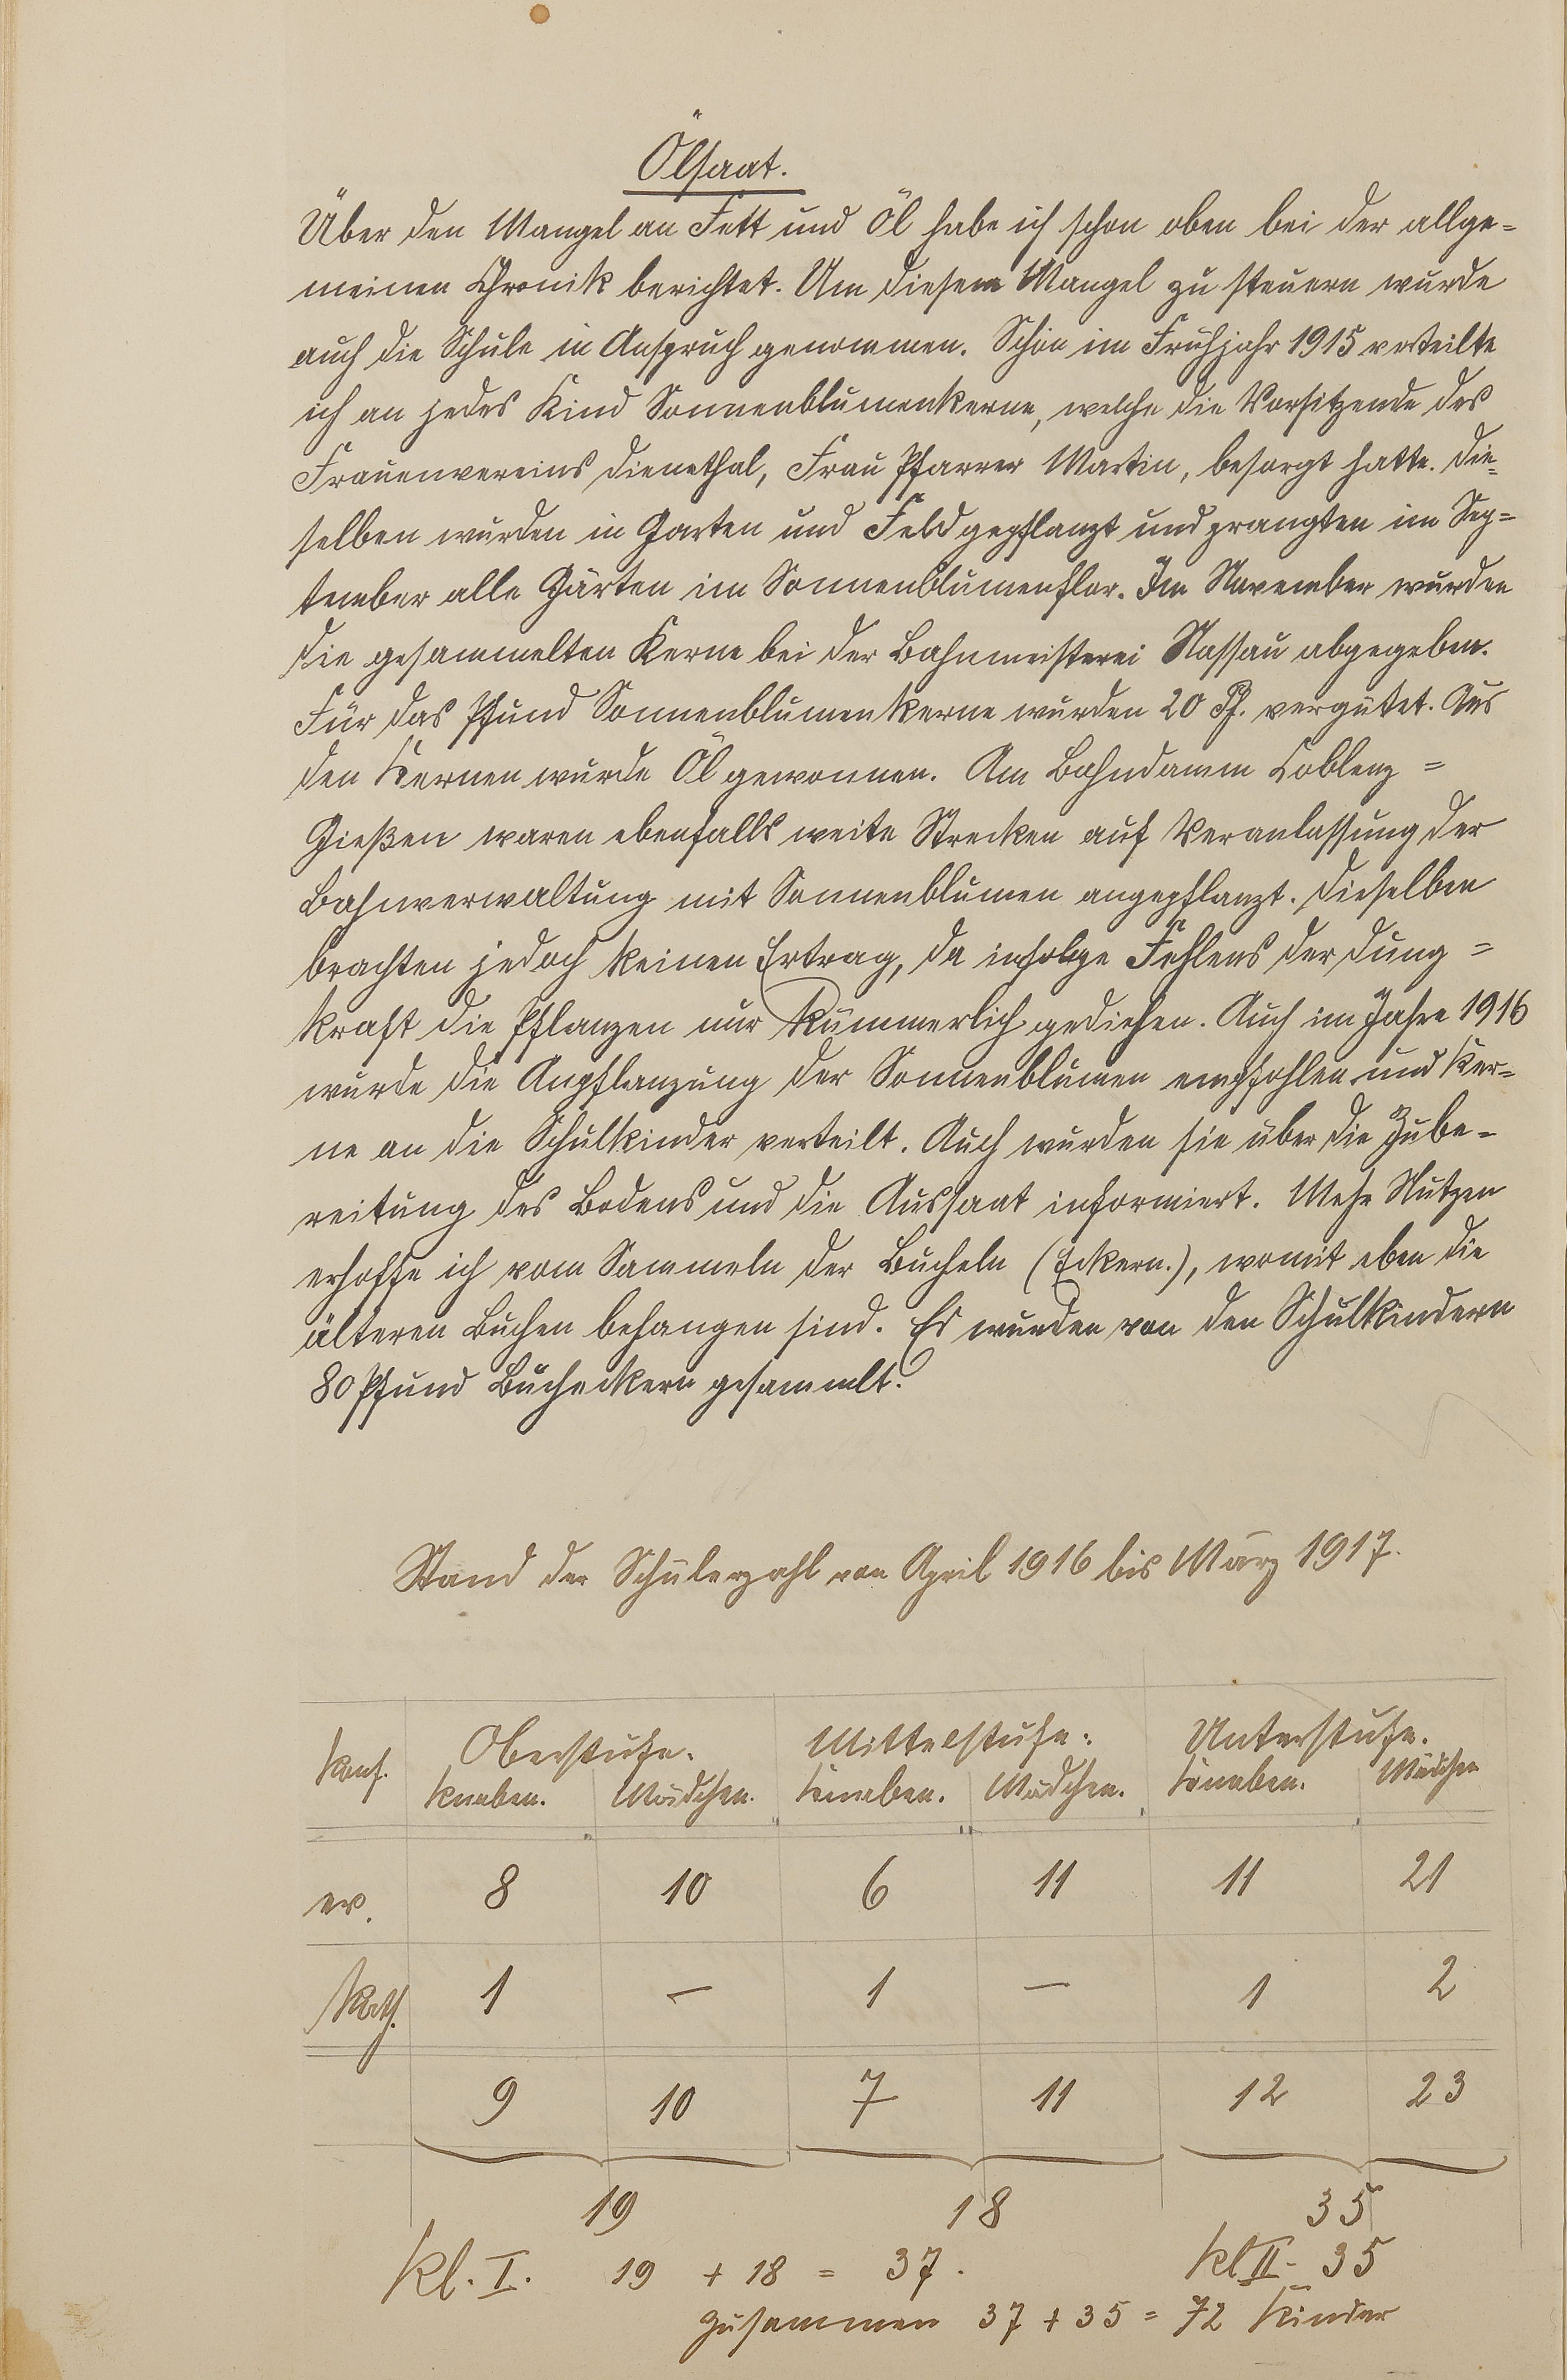 Ölsaat.
Über den Mangel an Fett und Öl habe ich schon oben bei der allge=
meinen Chronik berichtet. Um diesem Mangel zu steuern wurde
auch die Schule in Anspruch genommen. Schon im Frühjahr 1915 verteilte
ich an jedes Kind Sonnenblumenkerne, welche die Vorsitzende des
Frauenvereins Dienethal, Frau Pfarrer Martin, besorgt hatte. Die=
selben wurden in Garten und Feld gepflanzt und prangten im Sep=
tember alle Gärten im Sonnenblumenflor. Im November wurden
die gesammelten Kerne bei der Bahnmeisterei Nassau abgegeben.
Für das Pfund Sonnenblumenkerne wurden 20 Pf. vergütet. Aus
den Kernen wurde Öl gewonnen. Am Bahndamm Coblenz =
Gießen waren ebenfalls weite Strecken auf Veranlassung der
Bahnverwaltung mit Sonnenblumen angepflanzt. Dieselben
brachten jedoch keinen Ertrag, da infolge Fehlens der Dung =
kraft die Pflanzen nur kümmerlich gediehen. Auch im Jahre 1916
wurde die Anpflanzung der Sonnenblumen empfohlen und Ker=
ne an die Schulkinder verteilt. Auch wurden sie über die Zube=
reitung des Bodens und die Aussaat informiert. Mehr Nutzen
erhoffe ich vom Sammeln der Bucheln (Eckern.), womit eben die
älteren Buchen behangen sind. Es wurden von den Schulkindern
80 Pfund Bucheckern gesammelt.
Stand der Schülerzahl von April 1916 bis März 1917.
Konf. Oberstufe. Mittelstufe. Unterstufe.
Knaben. Mädchen. Knaben. Mädchen. Knaben. Mädchen
ev. 8 10 6 11 11 21
Kath. 1 — 1 — 1 2
9 10 7 11 12 23
19 18 35
Kl. I. 19 + 18 = 37. Kl II - 35
Zusammen 37 + 35 = 72 Kinder